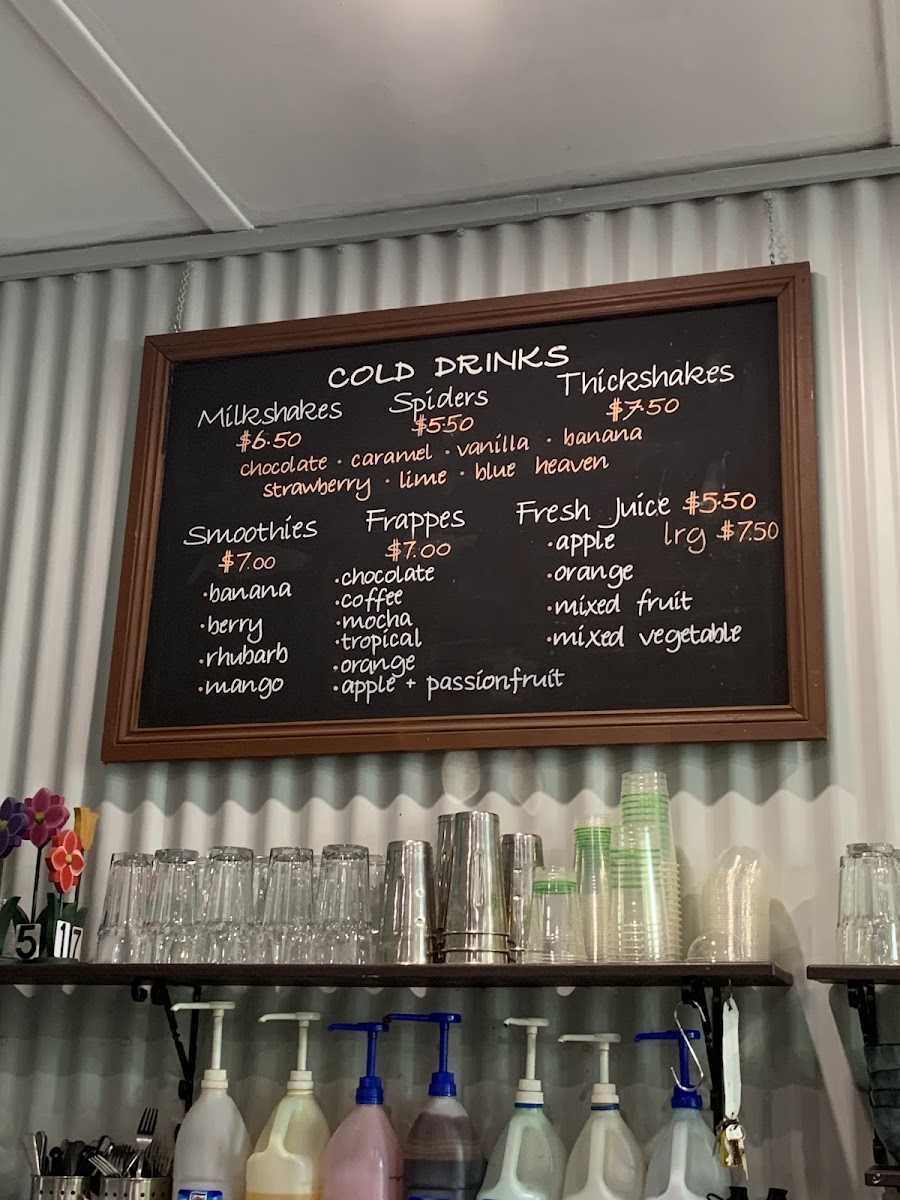 COLD DRINKS
Milkshakes
$6.50
Spiders
$5.50
Thickshakes
$7.50
chocolate · caramel · vanilla · banana
strawberry · lime · blue heaven
Smoothies
$7.00
·banana
·berry
·rhubarb
·mango
Frappes
$7.00
·chocolate
·coffee
·mocha
·tropical
·orange
·apple + passionfruit
Fresh Juice $5.50
·apple lrg $7.50
·orange
·mixed fruit
·mixed vegetable
5
17